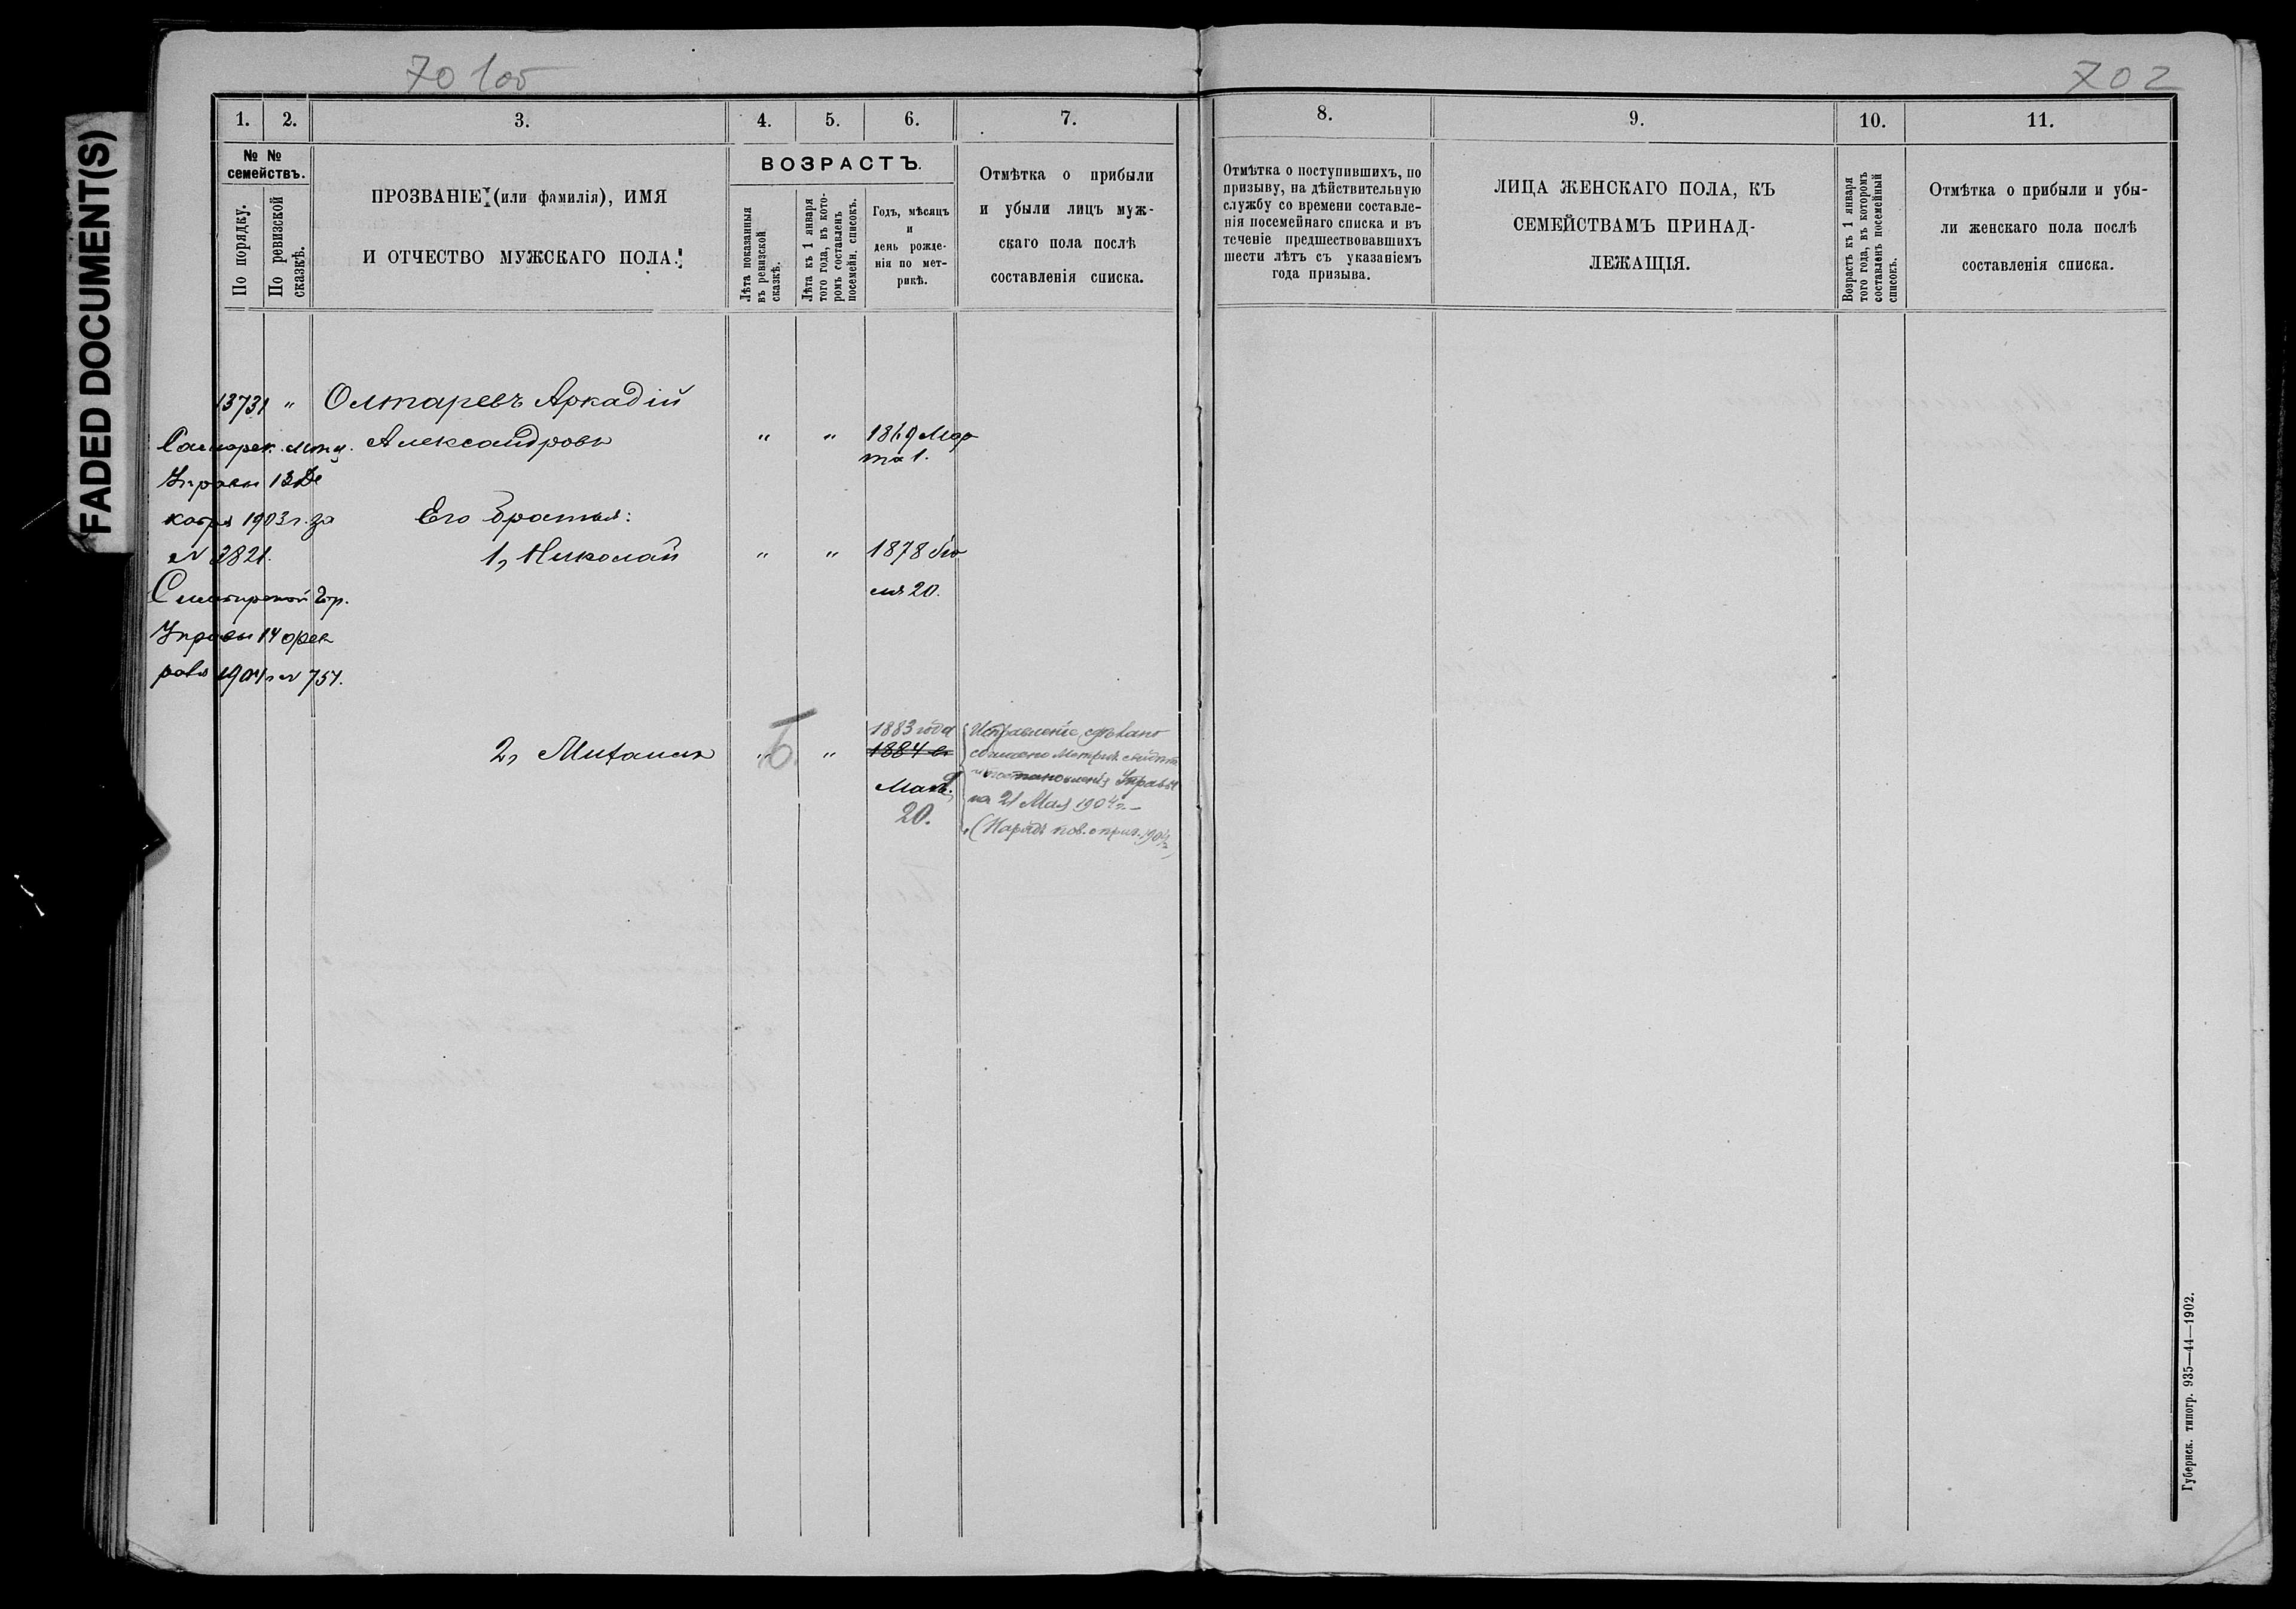 70 1об
702
FADED DOCUMENT(S)
1.
2.
3.
4.
5.
6.
7.
№ №
семействъ.
По порядку.
По ревизской
сказкѣ.
ПРОЗВАНІЕ (или фамилія), ИМЯ
И ОТЧЕСТВО МУЖСКАГО ПОЛА.
ВОЗРАСТЪ.
Лѣта показанныя
въ ревизской
сказкѣ.
Лѣта къ 1 января
того года, въ кото-
ромъ составленъ
посемейн. списокъ.
Годъ, мѣсяцъ
и
день рожде-
нія по мет-
рикѣ.
Отмѣтка о прибыли
и убыли лицъ муж-
скаго пола послѣ
составленія списка.
13731 " Олтаревъ Аркадій
Александровъ " " 1869 Мар
та 1.
Самарск. Мѣщ.
Управы 13 Де
кабря 1903 г. за
№ 3821.
Симбирской Гор.
Управы 14 фев
раля 1904 г № 754.
Его братья:
1, Николай " " 1878 Ію
ля 20.
2, Михаилъ " Б "
1883 года
1884 г.
Мая
20.
Исправленіе сдѣлано
согласно Метрич. свидѣт
и постановленія Управы
на 21 Мая 1904 г. —
(Нарядъ пов. о приз. 1904 г.)
8.
9.
10.
11.
Отмѣтка о поступившихъ, по
призыву, на дѣйствительную
службу со времени составле-
нія посемейнаго списка и въ
теченіе предшествовавшихъ
шести лѣтъ съ указаніемъ
года призыва.
ЛИЦА ЖЕНСКАГО ПОЛА, КЪ
СЕМЕЙСТВАМЪ ПРИНАД-
ЛЕЖАЩІЯ.
Возрастъ къ 1 января
того года, въ которомъ
составленъ посемейный
списокъ.
Отмѣтка о прибыли и убы-
ли женскаго пола послѣ
составленія списка.
Губернск. типогр. 935—44—1902.